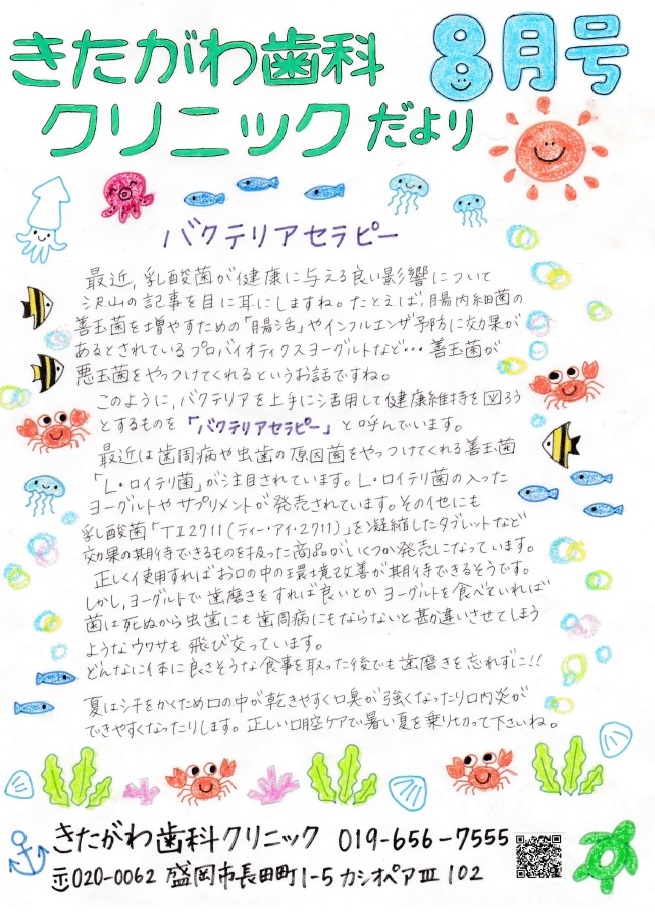 きたがわ歯科
8月号
クリニックだより
バクテリアセラピー
最近、乳酸菌が健康に与える良い影響について
沢山の記事を目に耳にしますね。たとえば、腸内細菌の
善玉菌を増やすための「腸活」やインフルエンザ予防に効果が
あるとされているプロバイオティクスヨーグルトなど…善玉菌が
悪玉菌をやっつけてくれるというお話ですね。
このように、バクテリアを上手に活用して健康維持を図ろう
とするものを「バクテリアセラピー」と呼んでいます。
最近は歯周病や虫歯の原因菌をやっつけてくれる善玉菌
「L・ロイテリ菌」が注目されています。L・ロイテリ菌の入った
ヨーグルトやサプリメントが発売されています。その他にも
乳酸菌「TI2711(ティー・アイ・2711)」を凝縮したタブレットなど
効果の期待できるものを扱った商品がいくつか発売になっています。
正しく使用すればお口の中の環境改善が期待できるそうです。
しかし、ヨーグルトで歯磨きをすれば良いとかヨーグルトを食べていれば
菌は死ぬから虫歯にも歯周病にもならないと勘違いさせてしまう
ようなウワサも飛び交っています。
どんなに体に良さそうな食事を取った後でも歯磨きを忘れずに!!
夏は汗をかくため口の中が乾きやすく口臭が強くなったり口内炎が
できやすくなったりします。正しい口腔ケアで暑い夏を乗り切って下さいね。
きたがわ歯科クリニック 019-656-7555
〒020-0062 盛岡市長田町1-5 カシオペアⅢ 102